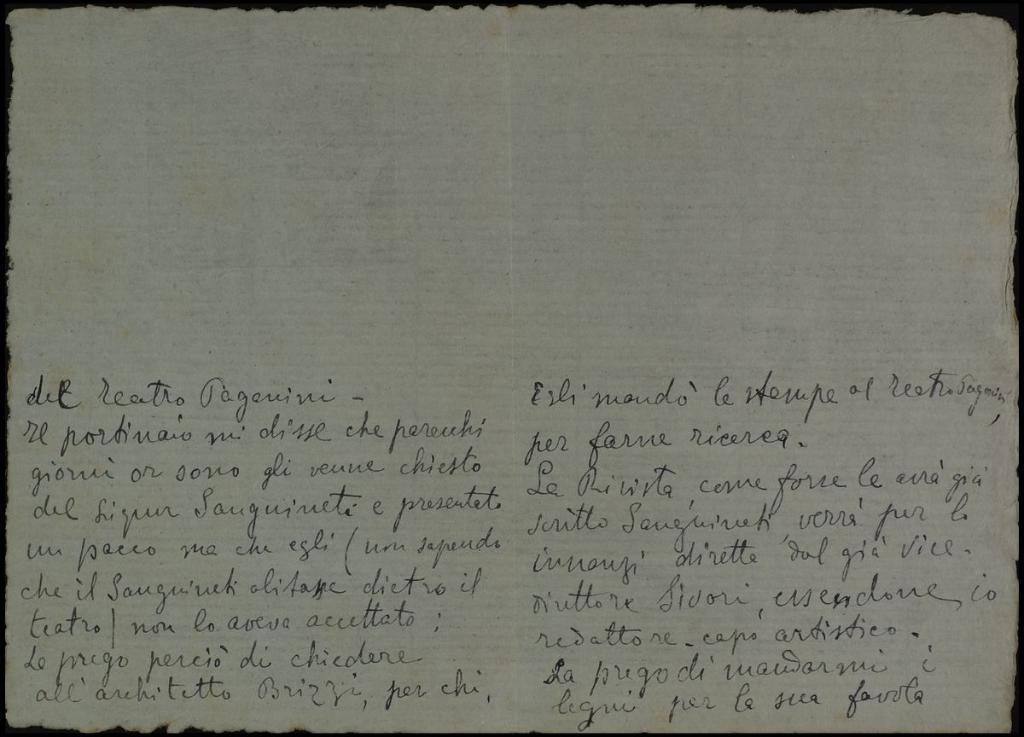 del Teatro Paganini -
Il portinaio mi disse che parecchi
giorni or sono gli venne chiesto
del Signor Sanguineti e presentato
un pacco ma che egli (non sapendo
che il Sanguineti abitasse dietro il
teatro) non lo aveva accettato;
La prego perciò di chiedere
all'architetto Brizzi, per chi,
Egli mandò le stampe al Teatro Paganini,
per farne ricerca.
La Rivista, come forse le avrà già
scritto Sanguineti, verrà per lo
innanzi diretta dal già Vice-
Direttore Sivori, essendone io
redattore-capo artistico.
La prego di mandarmi i
legni per la sua favola